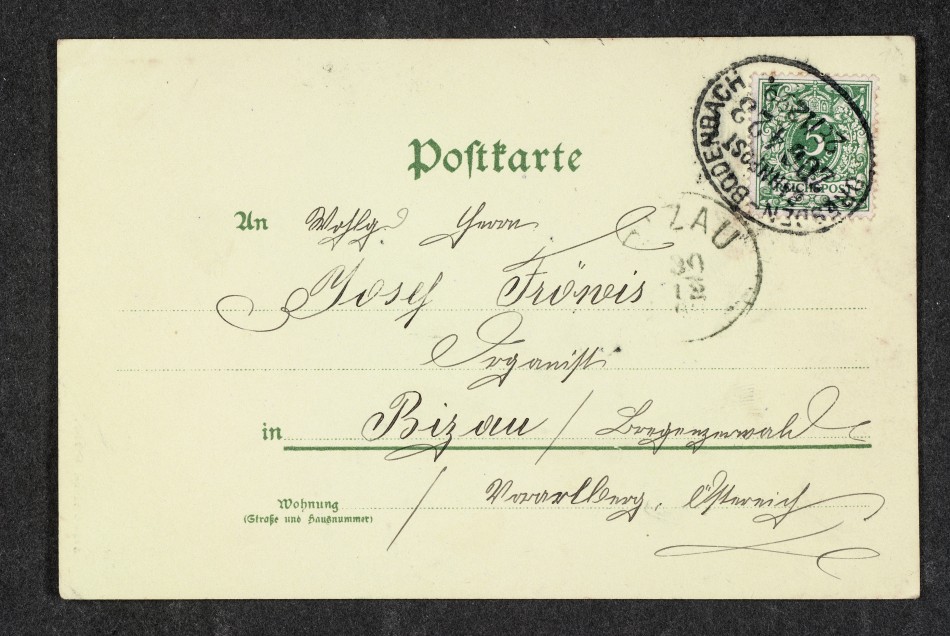 Postkarte
DRESDEN-BODENBACH
BAHNPOST
ZUG 423
5
REICHSPOST
ZAU
An Wohlg. Herrn
Josef Fröwis
Organist
in Bizau / Bregenzerwald
Wohnung
(Straße und Hausnummer)
/ Vorarlberg, Österreich